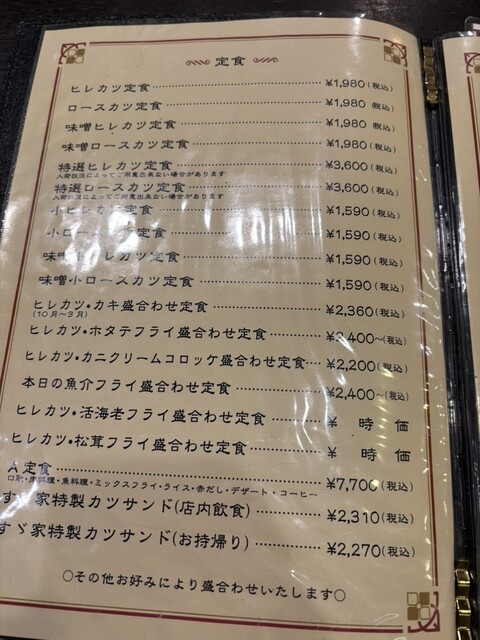 定食
ヒレカツ定食 ¥1,980(税込)
ロースカツ定食 ¥1,980(税込)
味噌ヒレカツ定食 ¥1,980(税込)
味噌ロースカツ定食 ¥1,980(税込)
特選ヒレカツ定食 ¥3,600(税込)
入荷状況によってご用意出来ない場合があります
特選ロースカツ定食 ¥3,600(税込)
入荷状況によってご用意出来ない場合があります
小ヒレカツ定食 ¥1,590(税込)
小ロースカツ定食 ¥1,590(税込)
味噌小ヒレカツ定食 ¥1,590(税込)
味噌小ロースカツ定食 ¥1,590(税込)
ヒレカツ・カキ盛合わせ定食 ¥2,360(税込)
(10月〜3月)
ヒレカツ・ホタテフライ盛合わせ定食 ¥2,400〜(税込)
ヒレカツ・カニクリームコロッケ盛合わせ定食 ¥2,200(税込)
本日の魚介フライ盛合わせ定食 ¥2,400〜(税込)
ヒレカツ・活海老フライ盛合わせ定食 ¥ 時 価
ヒレカツ・松茸フライ盛合わせ定食 ¥ 時 価
A定食 ¥7,700(税込)
魚料理・ミックスフライ・ライス・赤だし・デザート・コーヒー
すゞ家特製カツサンド(店内飲食) ¥2,310(税込)
すゞ家特製カツサンド(お持帰り) ¥2,270(税込)
○その他お好みにより盛合わせいたします○